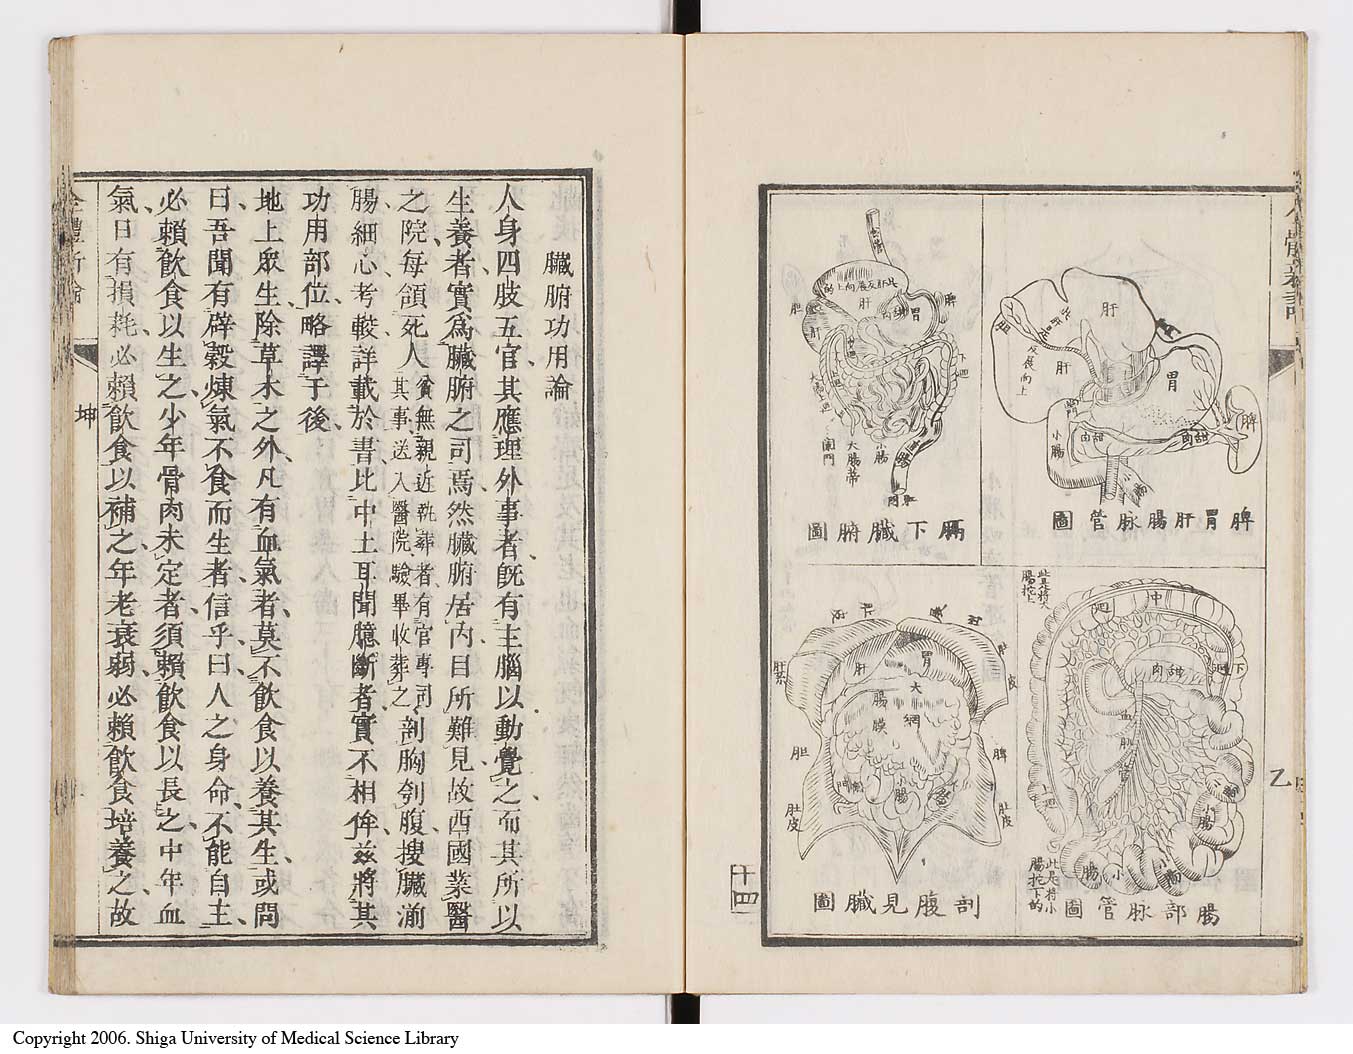 脾胃肝腸脉管圖
肝
肝
反長向上
胆
胃
脾
甜肉
甜肉
小腸
膈下臟腑圖
食管
肝
胃
甜肉
脾
胆
小腸
大腸蒂
闌門
肛門
腸部脉管圖
此是將大
腸挖上
甜肉
血
管
小腸
小
腸
此是將小
腸挖下的
剖腹見臟圖
肝
胃
大
網
腸
膜
小腸
胆
脾
肚皮
肚皮
乙
十四
臟腑功用論
人身四肢五官其應理外事者旣有主腦以動覺之而其所以
生養者實爲臟腑之司焉然臟腑居內目所難見故西國業醫
之院每領死人貧無親近執葬者有官專司其事送入醫院驗畢收葬之剖胸刳腹搜臟湔
腸細心考較詳載於書比中土耳聞臆斷者實不相侔兹將其
功用部位略譯于後
地上衆生除草木之外凡有血氣者莫不飲食以養其生或問
曰吾聞有辟穀煉氣不食而生者信乎曰人之身命不能自主
必賴飲食以生之少年骨肉未定者須賴飲食以長之中年血
氣日有損耗必賴飲食以補之年老衰弱必賴飲食培養之故
全體新論
坤
Copyright 2006. Shiga University of Medical Science Library